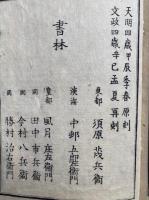 天明四歳甲辰季春原刻
文政四歳辛巳孟夏再刻
書林
東都 須原茂兵衛
浪華
皇都 風月庄左衛門
同 田中市兵衛
同 今村八兵衛
同 勝村治右衛門